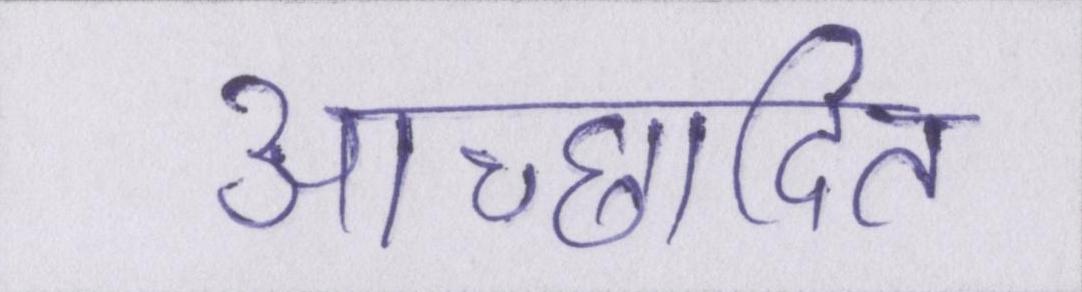 आच्छादित